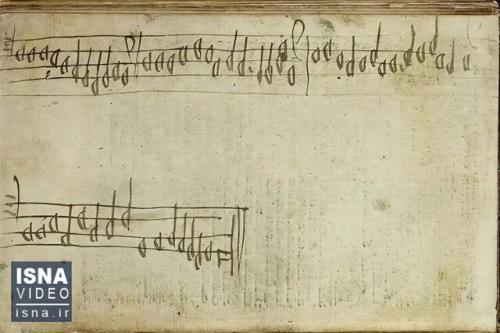 ISNA
VIDEO
isna.ir